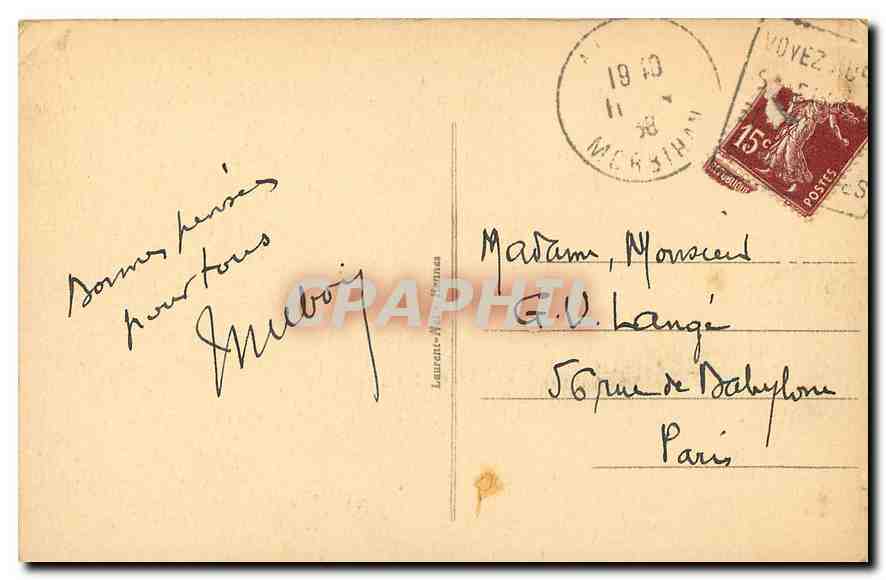 Bonnes pensées
pour tous
19 10
11
38
MORBIHAN
VOYEZ
15c
POSTES
Madame, Monsieur
G.V. Langé
56 rue de Babylone
Paris
Laurent-Nel, Rennes
CPAPHIL